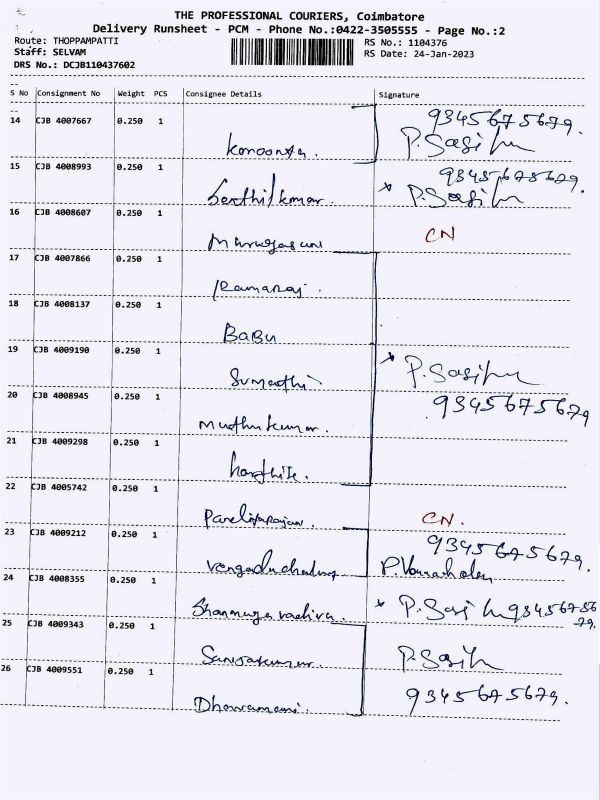 THE PROFESSIONAL COURIERS, Coimbatore
Delivery Runsheet - PCM - Phone No.:0422-3505555 - Page No.:2
Route: THOPPAMPATTI
Staff: SELVAM
DRS No.: DCJB110437602
RS No.: 1104376
RS Date: 24-Jan-2023
S No Consignment No Weight PCS Consignee Details Signature
14 CJB 4007667 0.250 1 9345675679.
P. Sasi
15 CJB 4008993 0.250 1 Senthilkumar. 9345675679.
P. Sasi
16 CJB 4008607 0.250 1 Murugesan CN
17 CJB 4007866 0.250 1 Ramaraj.
18 CJB 4008137 0.250 1 Babu
19 CJB 4009190 0.250 1 Sumathi P. Sasi
20 CJB 4008945 0.250 1 Muthukumar. 9345675679
21 CJB 4009298 0.250 1
22 CJB 4005742 0.250 1 CN.
23 CJB 4009212 0.250 1 9345675679.
24 CJB 4008355 0.250 1 Shanmuga vadivu. P. Sasi 9345675679.
25 CJB 4009343 0.250 1 P. Sasi
26 CJB 4009551 0.250 1 Dhanamani. 9345675679.